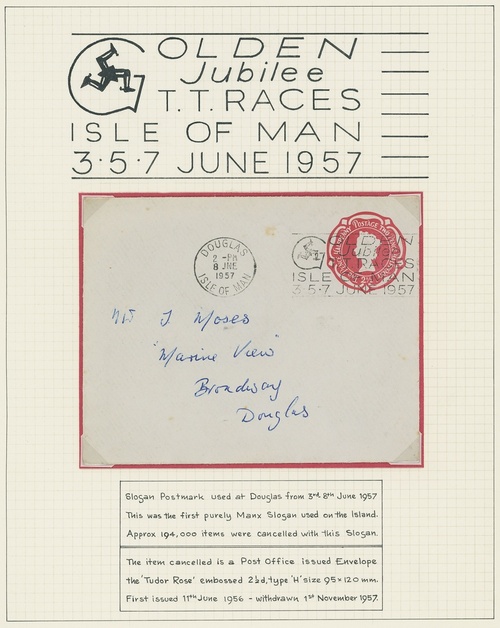 GOLDEN
Jubilee
T.T. RACES
ISLE OF MAN
3·5·7 JUNE 1957
DOUGLAS
2 - PM
8 JNE
1957
ISLE OF MAN
POSTAGE
GOLDEN
Jubilee
RACES
ISLE OF MAN
3·5·7 JUNE 1957
J Moses
"Marine View"
Broadway
Douglas
Slogan Postmark used at Douglas from 3rd-8th June 1957
This was the first purely Manx Slogan used on the Island.
Approx 194,000 items were cancelled with this Slogan.
The item cancelled is a Post Office issued Envelope
the 'Tudor Rose' embossed 2½d, type 'H' size 95 × 120 mm.
First issued 11th June 1956 - withdrawn 1st November 1957.